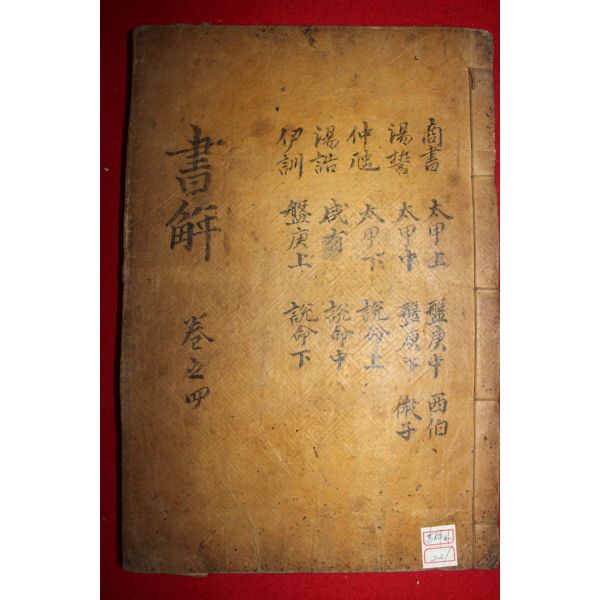 商書 太甲上 盤庚中 西伯
湯誓 太甲中 盤庚下 微子
仲虺 太甲下 說命上
湯誥 咸有 說命中
伊訓 盤庚上 說命下
書解 卷之四
221